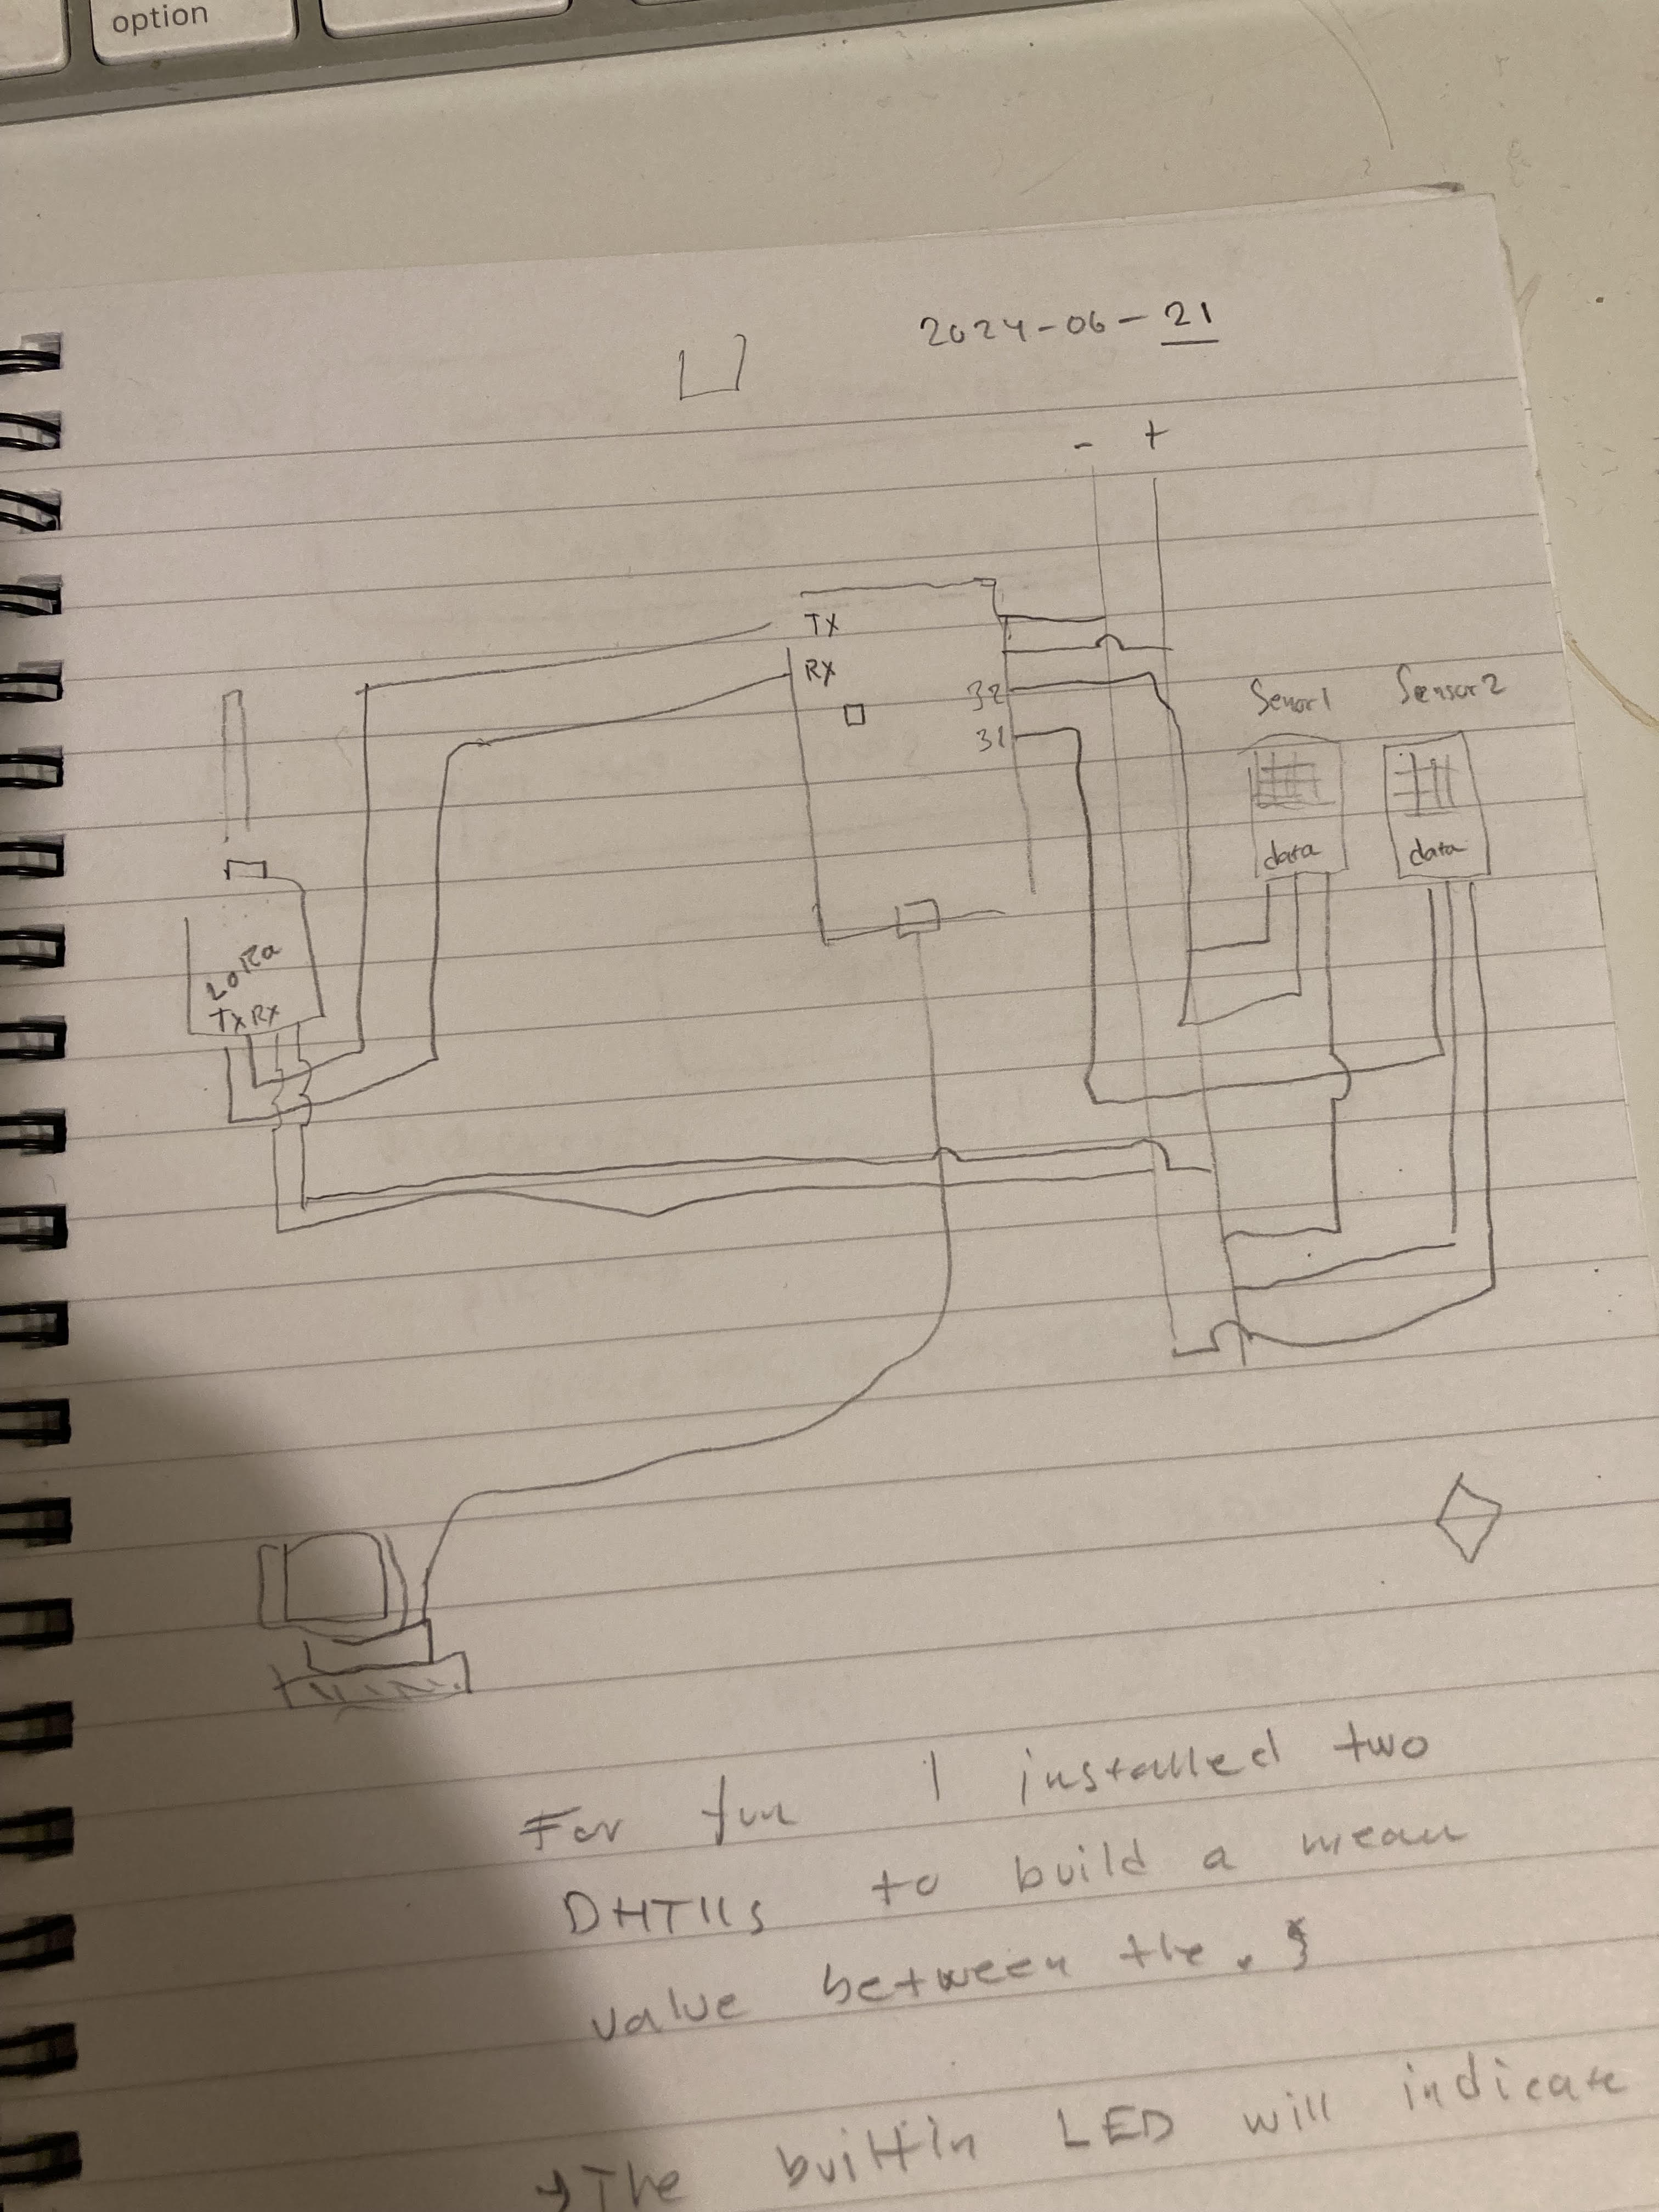 option
2024-06-21
- +
TX
RX
32
31
Senor1
Sensor2
data
data
LoRa
TX RX
For fun I installed two
DHT11s to build a mean
value between the.
→ The builtin LED will indicate